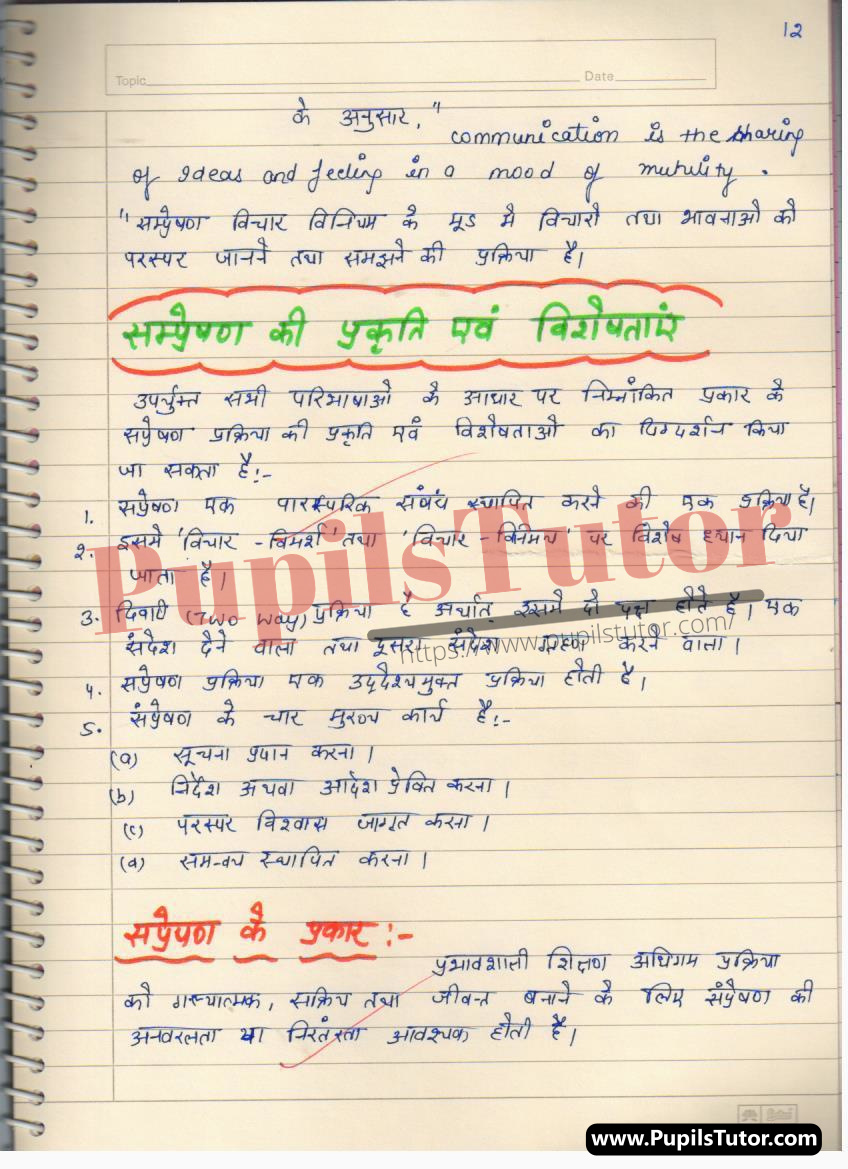 12
Topic Date
के अनुसार, "
communication is the sharing
of Ideas and feeling in a mood of mutulity.
"सम्प्रेषण विचार विनियम के मूड मे विचारो तथा भावनाओ को
परस्पर जानने तथा समझने की प्रक्रिया है।
सम्प्रेषण की प्रकृति एवं विशेषताएं
उपर्युक्त सभी परिभाषाओ के आधार पर निम्नांकित प्रकार के
सप्रेषण प्रक्रिया की प्रकृति एवं विशेषताओ का दिग्दर्शन किया
जा सकता है:-
1. सप्रेषण एक पारस्परिक संबंध स्थापित करने की एक प्रक्रिया है।
2. इसमे 'विचार - विमर्श' तथा 'विचार - विनिमय' पर विशेष ध्यान दिया
जाता है।
3. दिवाटे (Two Way) प्रक्रिया है अर्थात् इसमे दो पक्ष होते है। एक
संदेश देने वाला तथा दूसरा संदेश ग्रहण करने वाला।
4. सप्रेषण प्रक्रिया एक उद्देश्ययुक्त प्रक्रिया होती है।
5. संप्रेषण के चार मुख्य कार्य है:-
(a) सूचना प्रदान करना।
(b) निर्देश अथवा आदेश प्रेषित करना।
(c) परस्पर विश्वास जागृत करना।
(d) समन्वय स्थापित करना।
सप्रेषण के प्रकार :-
प्रभावशाली शिक्षण अधिगम प्रक्रिया
को गत्यात्मक, सक्रिय तथा जीवन्त बनाने के लिए संप्रेषण की
अनवरलता या निरतंरता आवश्यक होती है।
PupilsTutor
https://www.pupilstutor.com/
www.PupilsTutor.com